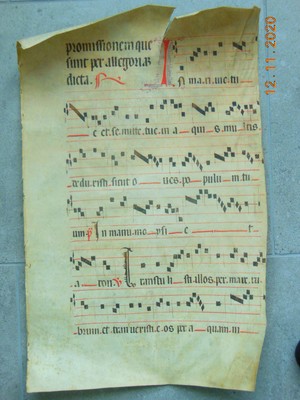 promissionem que
sunt per allegorias
dicta.
I n ma ri vie tu
e et se mite tue in a quis mul tis
de du xisti sicut o ves po pu lum tu
um In manu mo ysi e t
a ron Transtu li sti illos per mare ru
brum et trans vexisti e os per a quam ni
12.11.2020